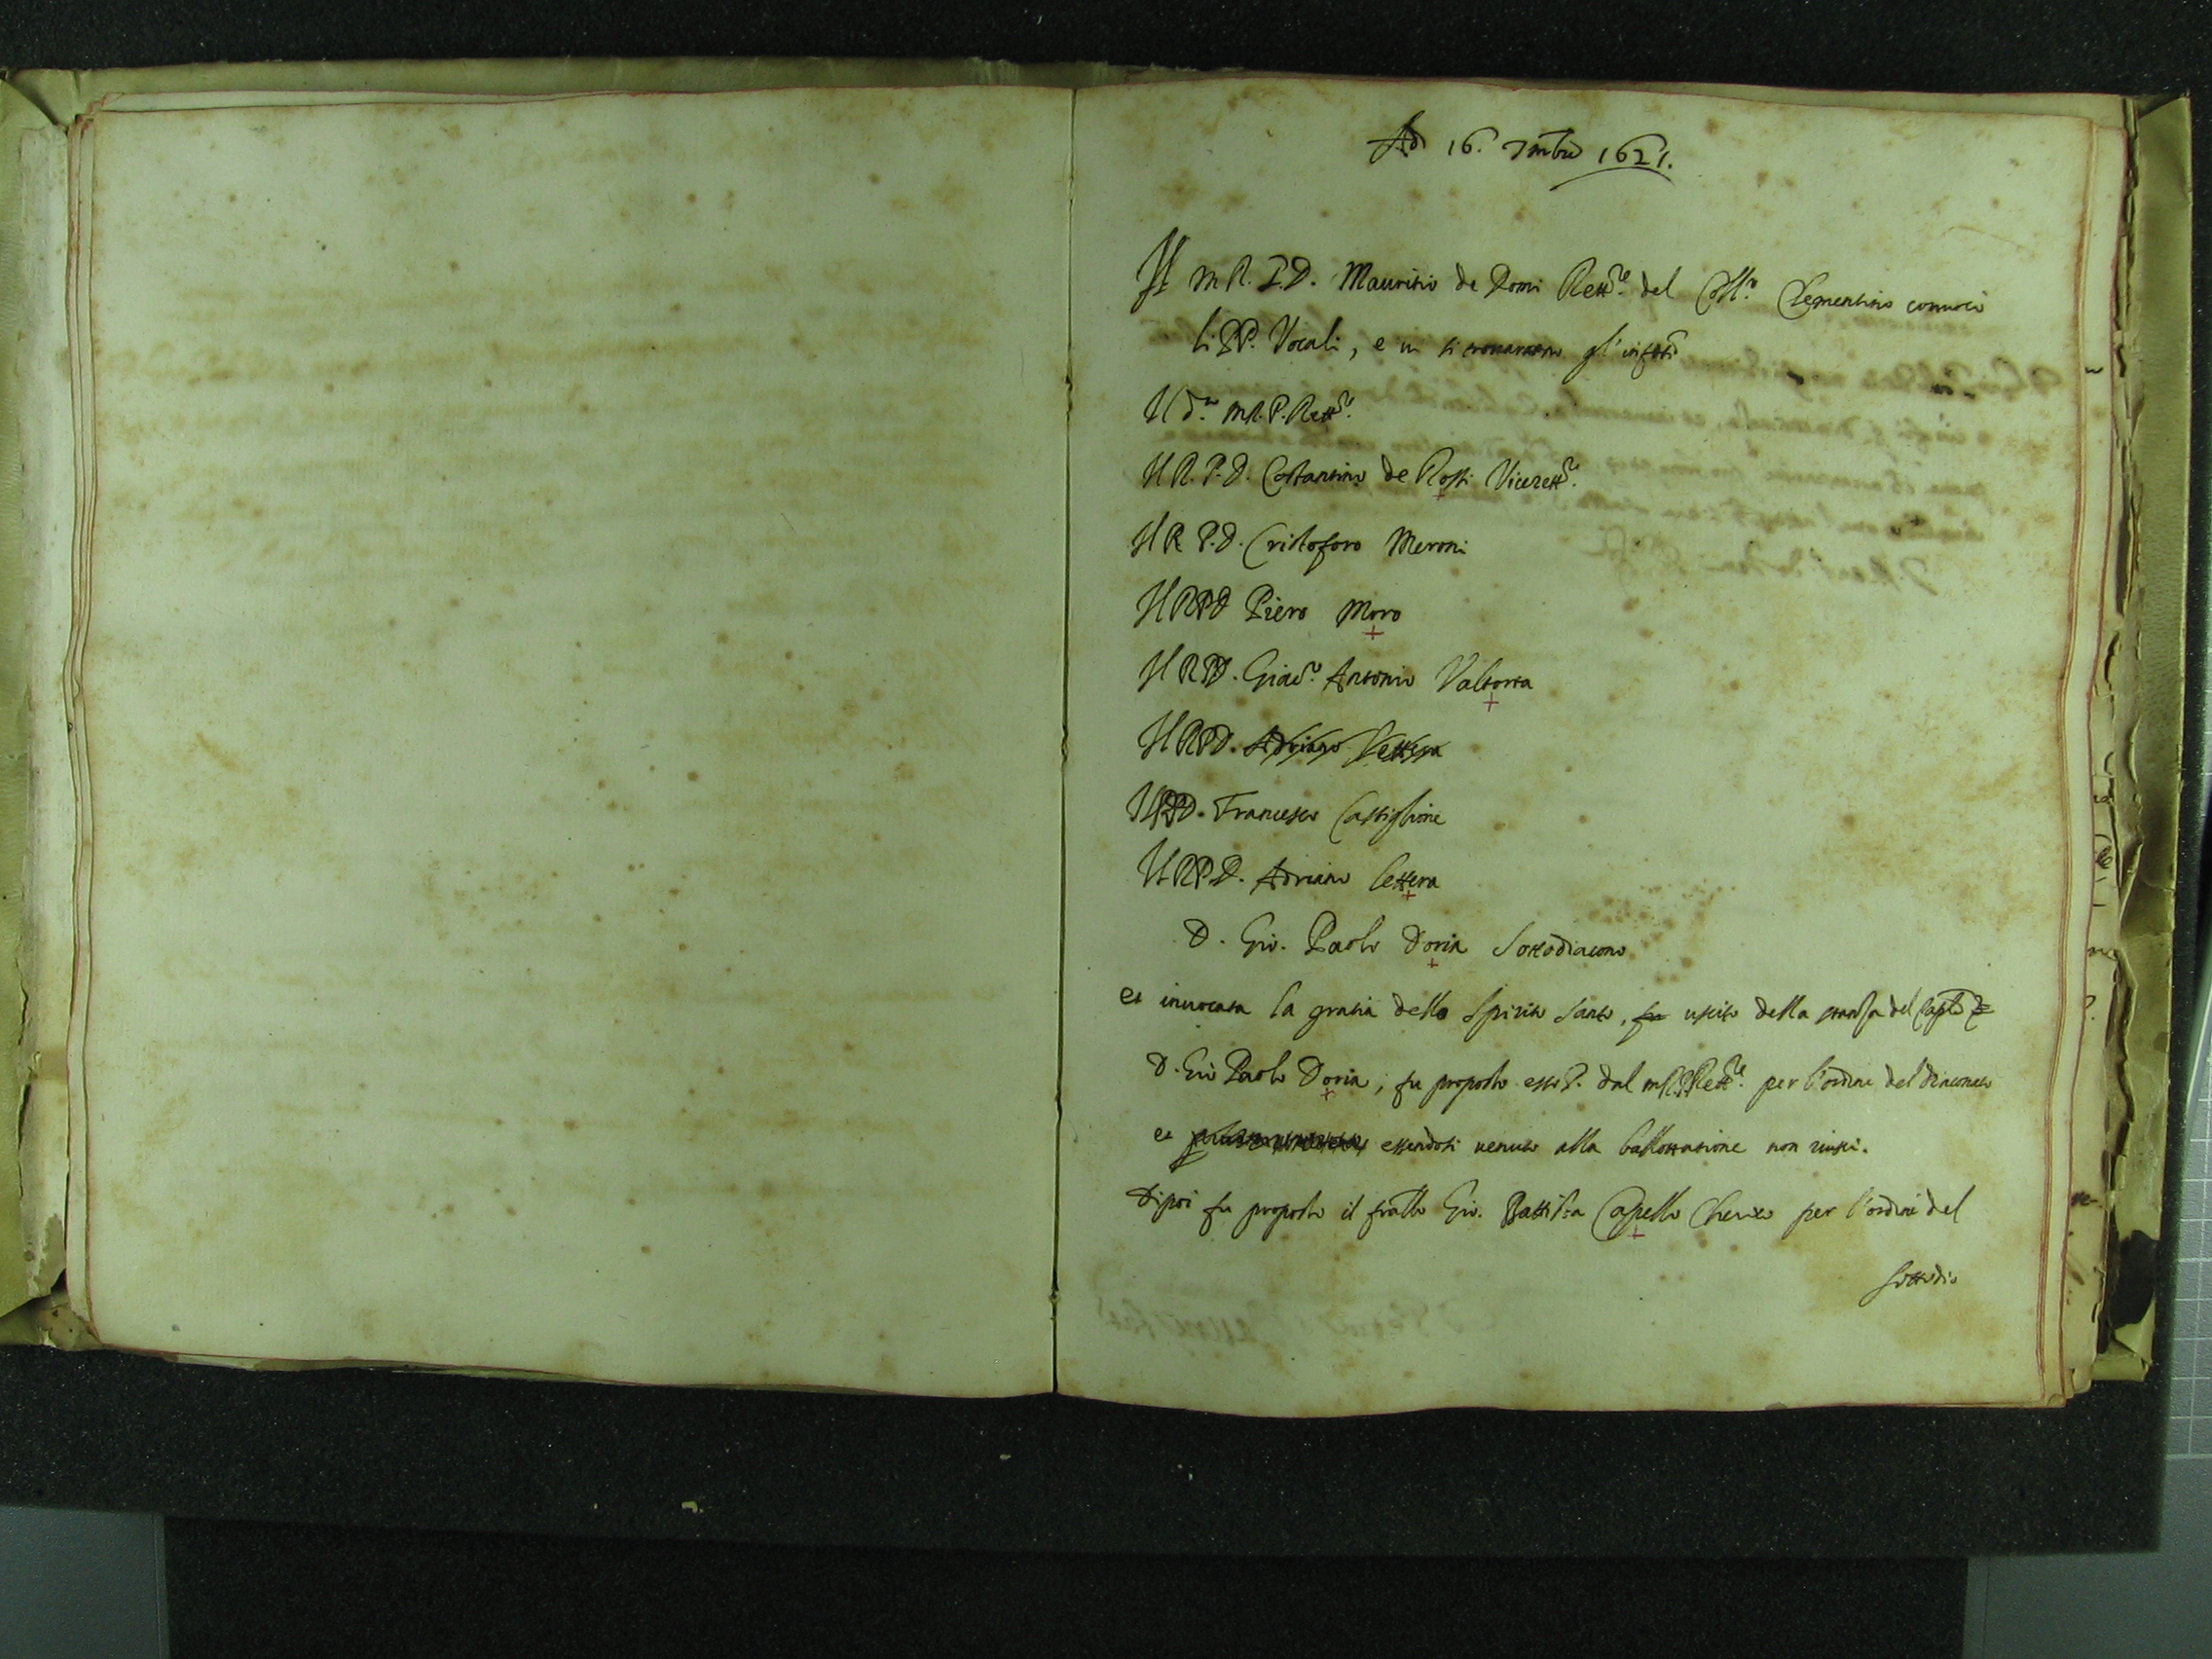 Ad 16. 7mbre 1621.
Il M.R.P.D. Mauritio de Domi Rett.re del Coll.o Clementino convocò
li PP. Vocali, e vi si trovarono gl'infrti
Il d.o M.R.P. Rett.re
Il R.P.D. Costantino de Rossi Vicerett.re
Il R P.D. Cristoforo Meroni
Il RPD Piero Moro
Il RPD. Giac.o Antonio Valtorta
Il RPD. Adriano Lettera
Il RPD. Francesco Castiglione
Il RPD. Adriano Lettera
D. Gio. Paolo Doria Sottodiacono
et invocata la gratia dello Spirito Santo, fu uscito della stanza del Caplo
D. Gio Paolo Doria, fu proposto esso P. dal m.R.P. Rett.re per l'ordine del Diaconato
et essendosi venuto alla ballottatione non riuscì.
Dipoi fu proposto il fratllo Gio. Battista Capello Cherico per l'ordine del
sottodia